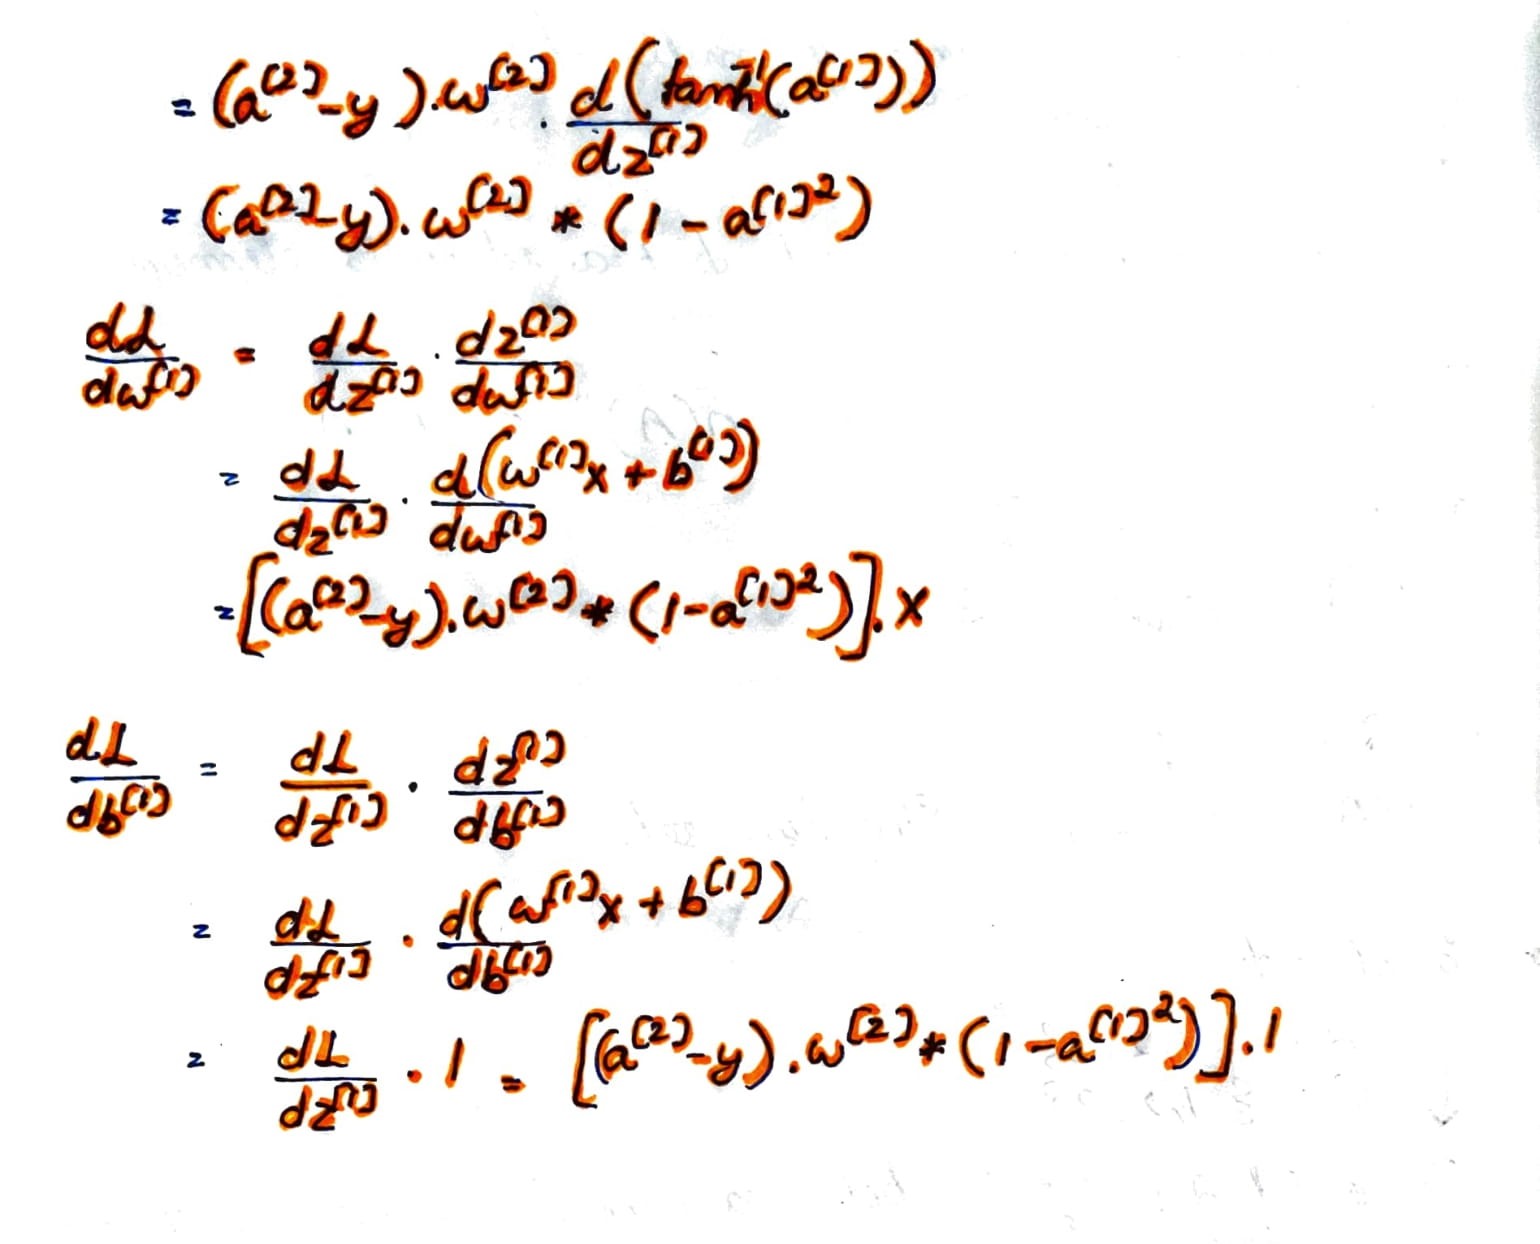 = (a^[2] - y).w^[2] . d(tanh^-1(a^[1]))/dz^[1]
= (a^[2] - y).w^[2] * (1 - a^[1]^2)
dL/dw^[1] = dL/dz^[1] . dz^[1]/dw^[1]
= dL/dz^[1] . d(w^[1]x + b^[1])/dw^[1]
= [(a^[2] - y).w^[2] * (1 - a^[1]^2)].x
dL/db^[1] = dL/dz^[1] . dz^[1]/db^[1]
= dL/dz^[1] . d(w^[1]x + b^[1])/db^[1]
= dL/dz^[1] . 1 = [(a^[2] - y).w^[2] * (1 - a^[1]^2)].1